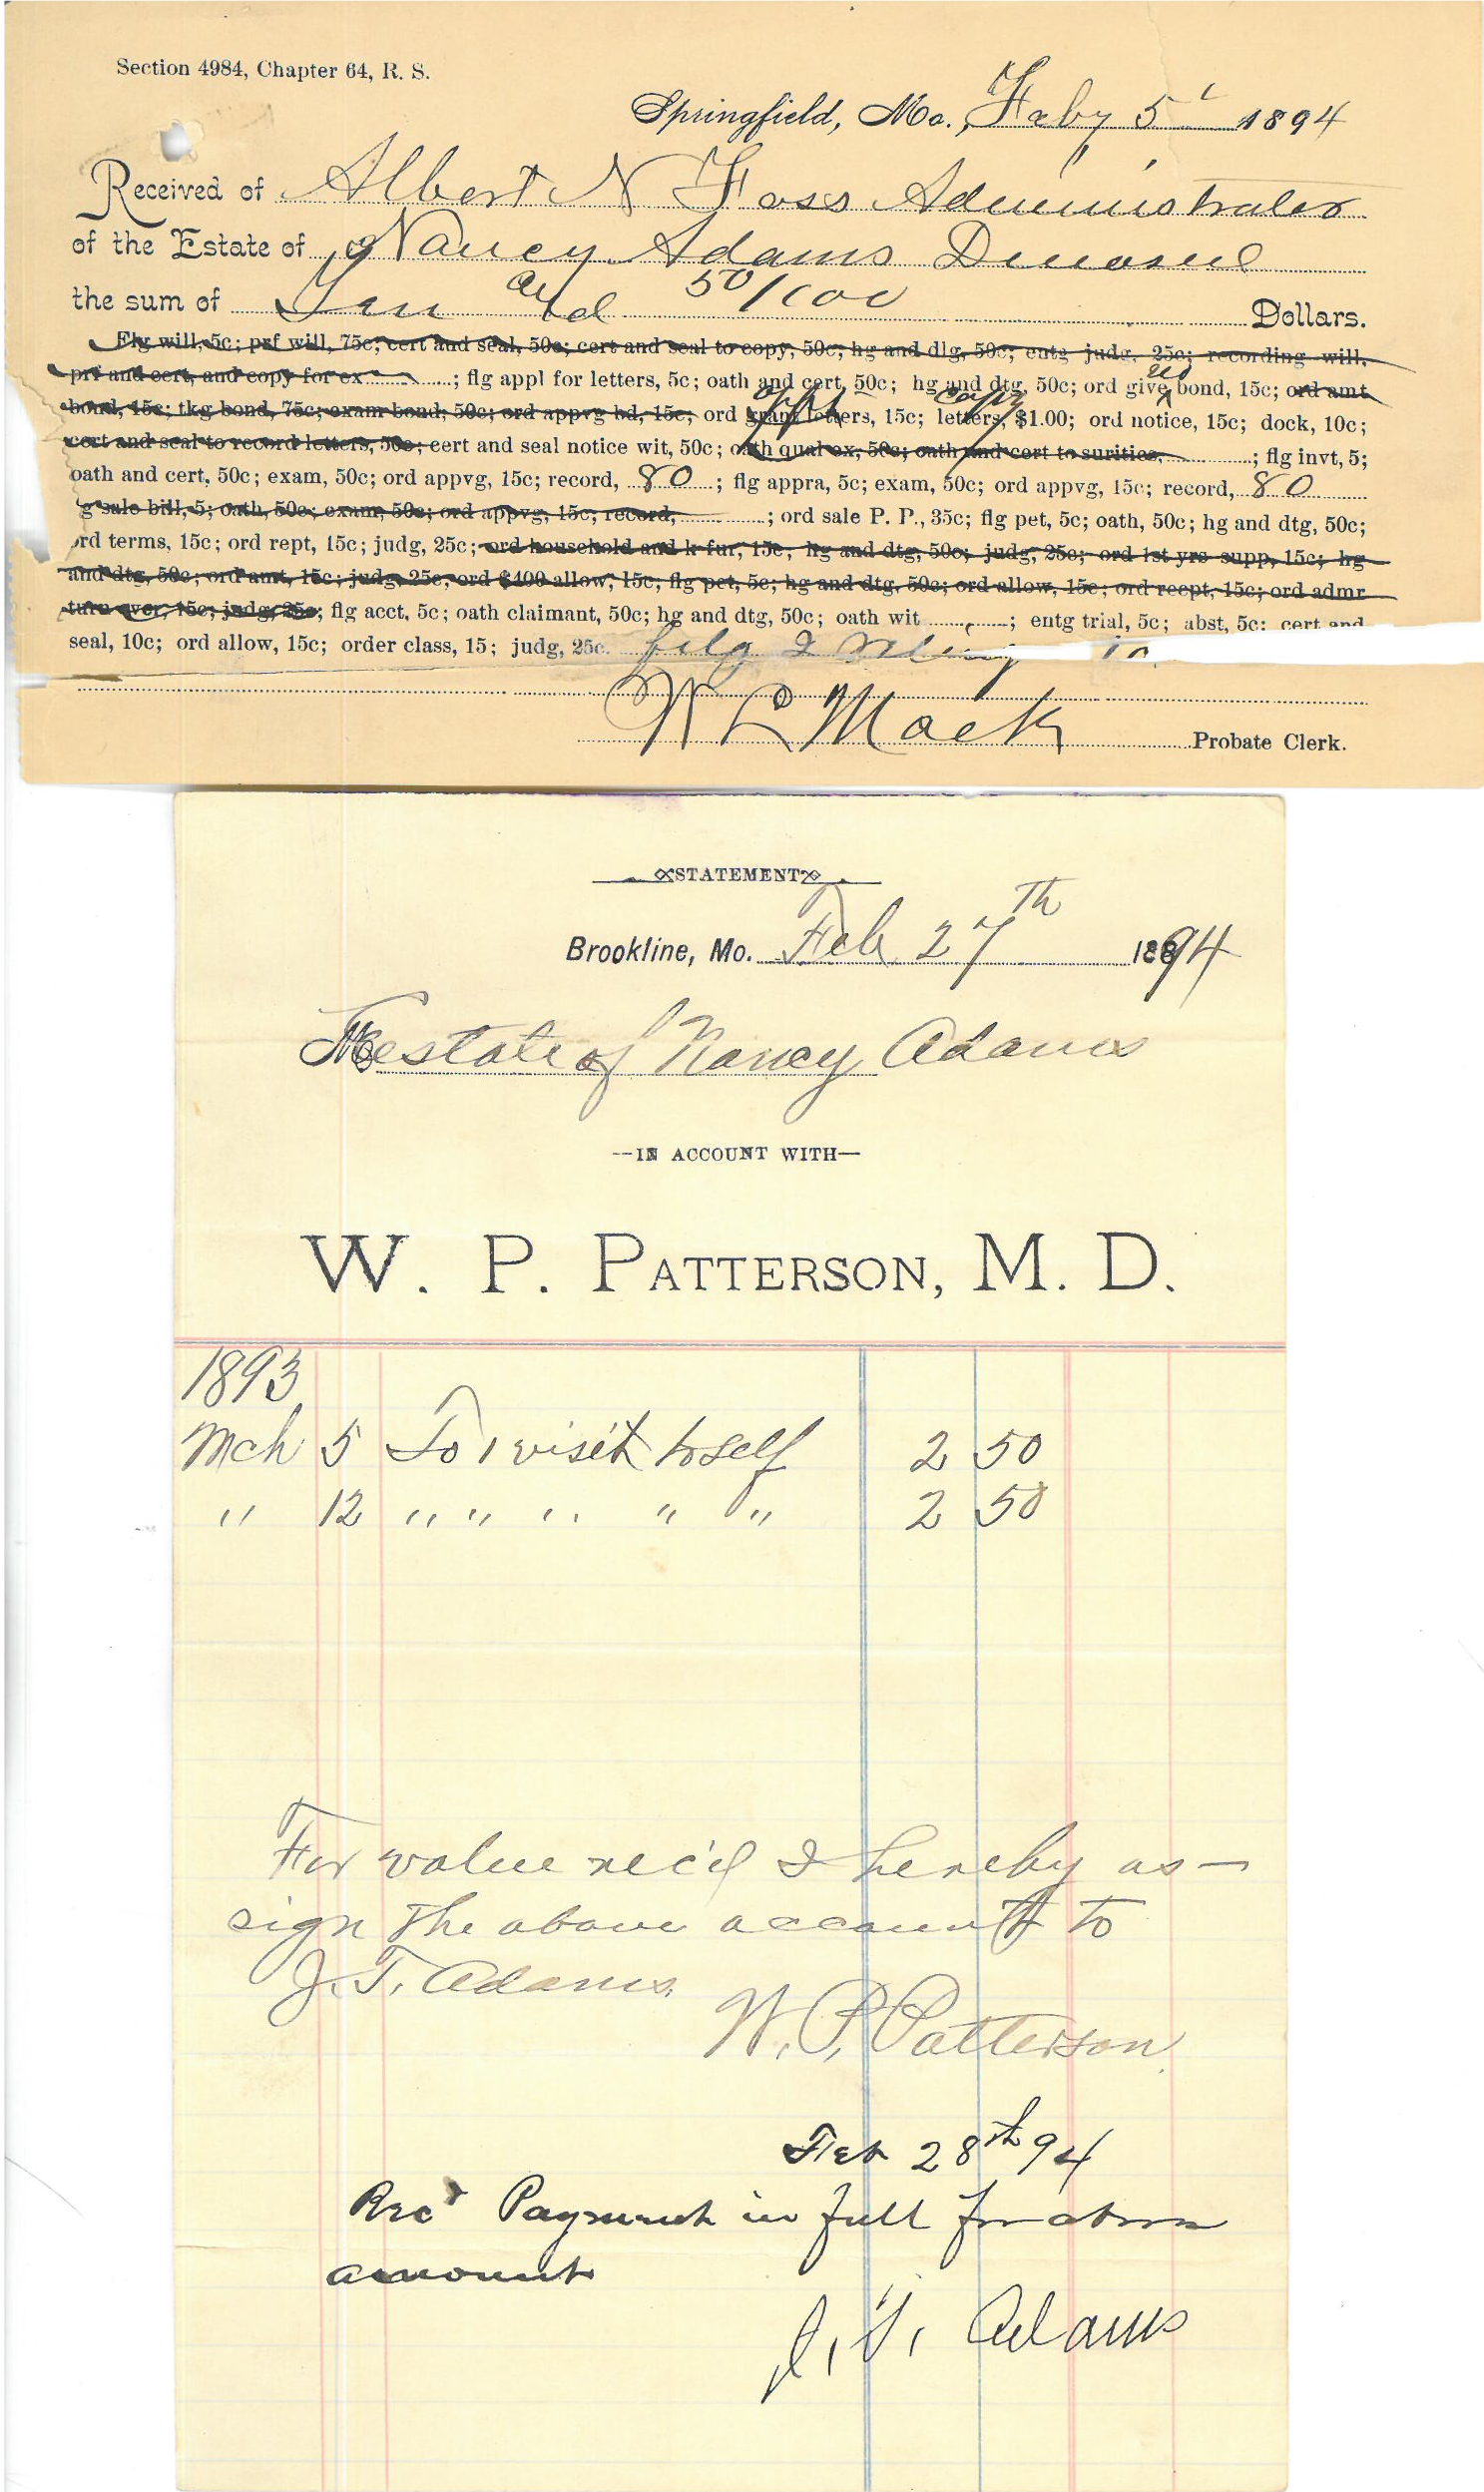 Section 4984, Chapter 64, R. S.
Springfield, Mo., Feby 5 1894
Received of Albert N Foss Administrator
of the Estate of Nancy Adams Deceased
the sum of Ten and 50/100 Dollars.
Flg will, 5c; prf will, 75c; cert and seal, 50c; cert and seal to copy, 50c; hg and dlg, 50c; entg judg, 25c; recording will,
prf and cert, and copy for ex ; flg appl for letters, 5c; oath and cert, 50c; hg and dtg, 50c; ord give new bond, 15c; ord amt
bond, 15c; tkg bond, 75c; exam bond, 50c; ord appvg bd, 15c; ord grant letters, 15c; letters, copy $1.00; ord notice, 15c; dock, 10c;
cert and seal to record letters, 50c; cert and seal notice wit, 50c; oath qual ex, 50c; oath and cert to surities, ; flg invt, 5;
oath and cert, 50c; exam, 50c; ord appvg, 15c; record, 80 ; flg appra, 5c; exam, 50c; ord appvg, 15c; record, 80
g sale bill, 5; oath, 50c; exam, 50c; ord appvg, 15c; record, ; ord sale P. P., 35c; flg pet, 5c; oath, 50c; hg and dtg, 50c;
ord terms, 15c; ord rept, 15c; judg, 25c; ord household and k fur, 15c; hg and dtg, 50c; judg, 25c; ord 1st yrs supp, 15c; hg
and dtg, 50c; ord amt, 15c; judg, 25c; ord $400 allow, 15c; flg pet, 5c; hg and dtg, 50c; ord allow, 15c; ord recpt, 15c; ord admr
turn over, 15c; judg, 25c; flg acct, 5c; oath claimant, 50c; hg and dtg, 50c; oath wit ; entg trial, 5c; abst, 5c; cert and
seal, 10c; ord allow, 15c; order class, 15; judg, 25c. filg 2
W L Mack Probate Clerk.
STATEMENT
Brookline, Mo. Feb 27th 1894
The estate of Nancy Adams
--IN ACCOUNT WITH--
W. P. PATTERSON, M. D.
1893
Mch 5 To 1 visit to self 2 50
" 12 " " " " " 2 50
For value rec'd I hereby as-
sign the above account to
J. T. Adams.
W. P. Patterson
Feb 28th 94
Recd Payment in full for above
amount
J. T. Adams